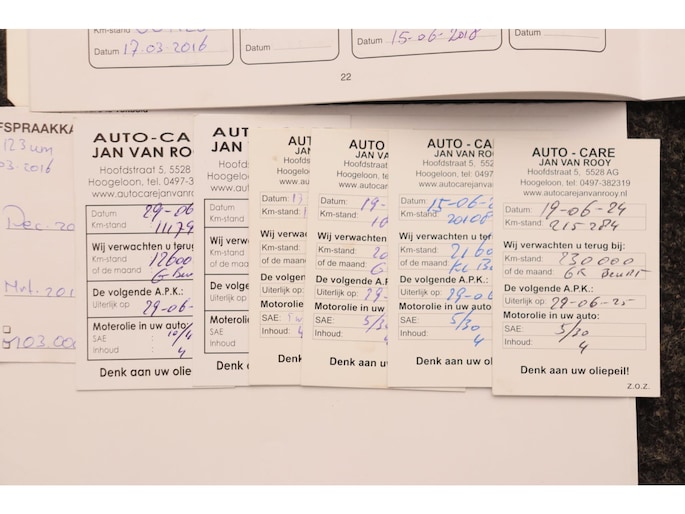 Km-stand
Datum 17-03-2016
Datum
Datum 15-06-2018
Datum
22
FSPRAAKKA
123
03-2016
Dec. 20
Mrt. 201
103.000
AUTO-CA
JAN VAN ROO
Hoofdstraat 5, 5528
Hoogeloon, tel. 0497-3
www.autocarejanva
Datum 29-06
Km-stand 11179
Wij verwachten u terug
Km-stand 12600
of de maand
De volgende A.P.K.:
Uiterlijk op 29-06-
Moterolie in uw auto:
SAE : 10/4
Inhoud : 4
Denk aan uw olie
AUTO
JAN
Hoofds
Hoogeloo
www.a
Datum
Km-stand
Wij verwa
Km-stand
of de maand
De volgen
Uiterlijk op
Moterolie
SAE
Inhoud
Denk
AU
JAN
Hoofds
Hoogeloo
www.a
Datum:
Km-stand:
Wij verwa
Km-stand:
of de maand:
De volgen
Uiterlijk op:
Motorolie
SAE:
Inhoud:
Denk
AUTO
JAN V
Hoofdstraa
Hoogeloon, te
www.autoca
Datum: 19-
Km-stand:
Wij verwachten
Km-stand:
of de maand:
De volgende A.
Uiterlijk op: 29-
Motorolie in uw
SAE: 5/30
Inhoud: 4
Denk aan
AUTO - CA
JAN VAN RO
Hoofdstraat 5, 55
Hoogeloon, tel. 049
www.autocarejanv
Datum: 15-06-2
Km-stand: 20108
Wij verwachten u te
Km-stand: 2160
of de maand:
De volgende A.P.K
Uiterlijk op: 29-0
Motorolie in uw a
SAE: 5/30
Inhoud: 4
Denk aan uw
AUTO - CARE
JAN VAN ROOY
Hoofdstraat 5, 5528 AG
Hoogeloon, tel. 0497-382319
www.autocarejanvanrooy.nl
Datum: 19-06-24
Km-stand: 215284
Wij verwachten u terug bij:
Km-stand: 230000
of de maand: GR Beurt
De volgende A.P.K.:
Uiterlijk op: 29-06-25
Motorolie in uw auto:
SAE: 5/30
Inhoud: 4
Denk aan uw oliepeil!
Z.O.Z.